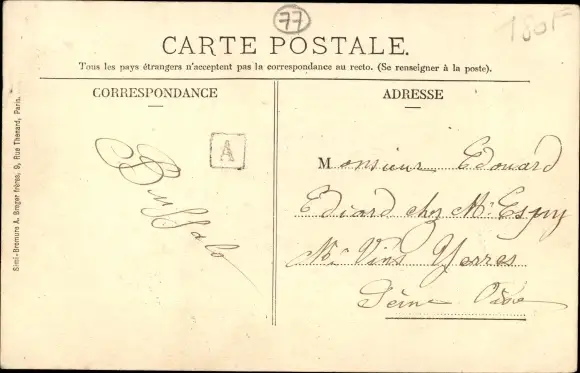 77
180F
CARTE POSTALE.
Tous les pays étrangers n'acceptent pas la correspondance au recto. (Se renseigner à la poste).
CORRESPONDANCE
Buffalo
A
Simi-Bromure A. Breger frères, 9, Rue Thénard, Paris.
ADRESSE
Monsieur Edouard
Ediard chez Mr Espy
Md Vins Yerres
Seine Oise